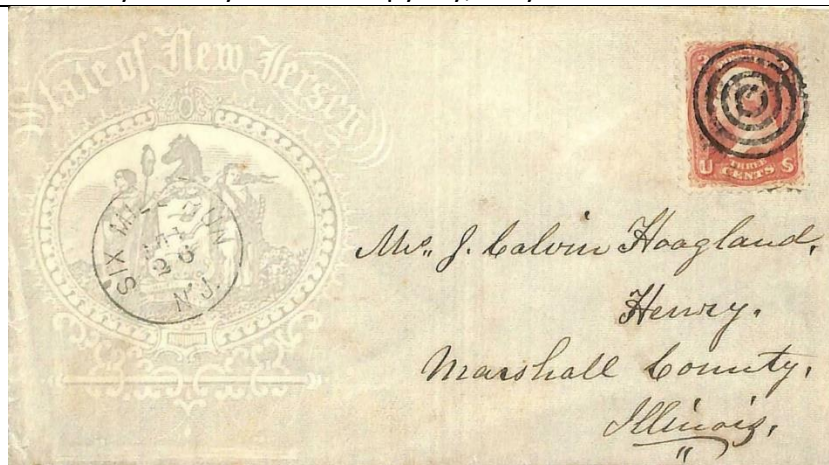 State of New Jersey
SIX MILE RUN
26
N.J.
THREE
CENTS
U S
Mr. J. Calvin Hoagland,
Henry.
Marshall County,
Illinois,